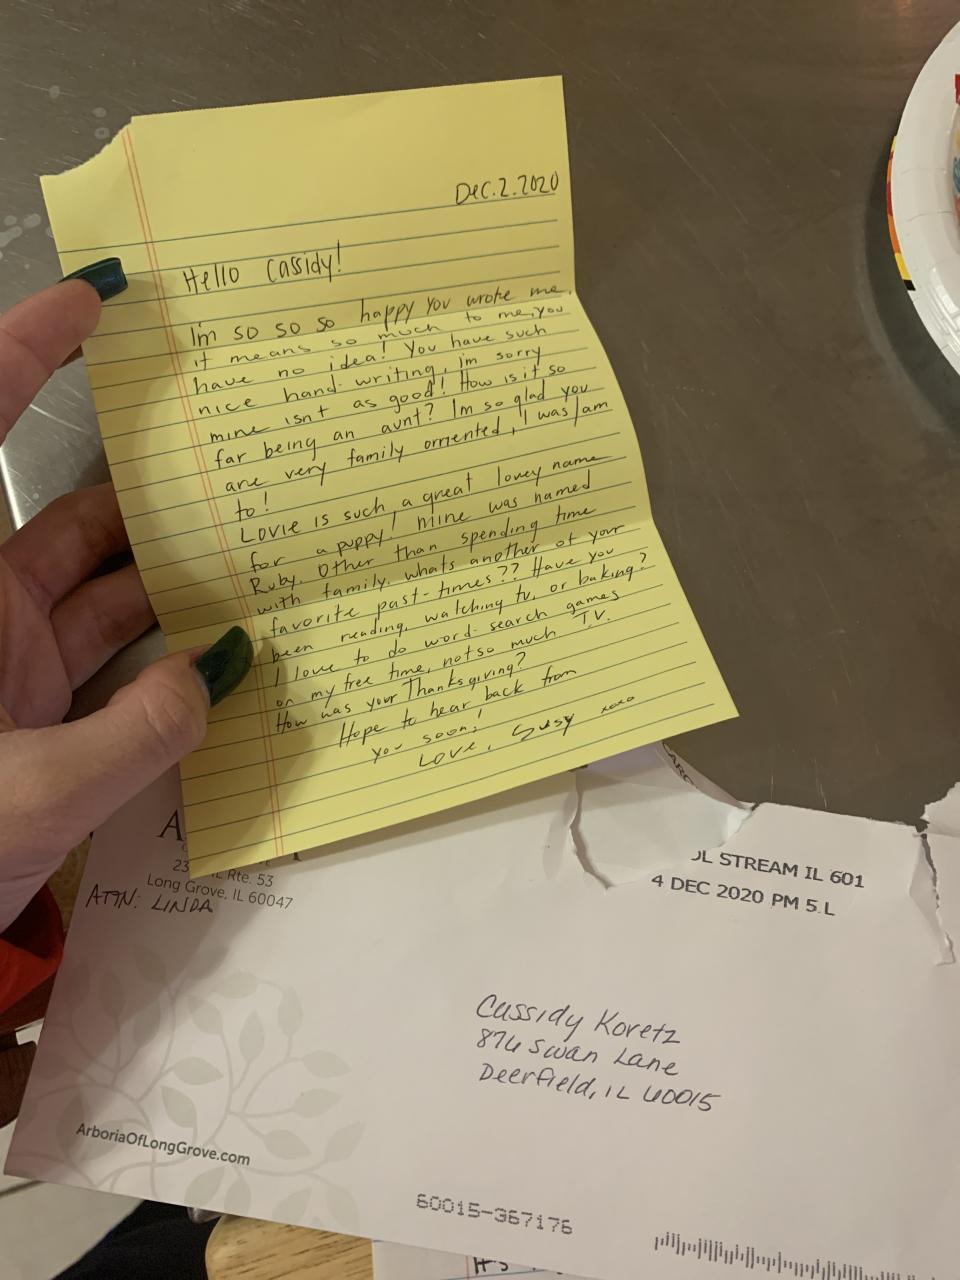 Dec. 2. 2020
Hello Cassidy!
I'm so so so happy you wrote me,
it means so much to me, you
have no idea! You have such
nice hand-writing, im sorry
mine isnt as good! How is it so
far being an aunt? Im so glad you
are very family orriented, I was/am
to!
Lovie is such a great lovey name
for a puppy! Mine was named
Ruby. Other than spending time
with family, whats another of your
favorite past-times?? Have you
been reading, watching tv, or baking?
I love to do word-search games
on my free time, not so much T.V.
How was your Thanksgiving?
Hope to hear back from
you soon!
Love, Susy xoxo
A
Rte. 53
Long Grove, IL 60047
ATTN: LINDA
OL STREAM IL 601
4 DEC 2020 PM 5 L
Cassidy Koretz
874 Swan Lane
Deerfield, IL 60015
ArboriaOfLongGrove.com
60015-367176